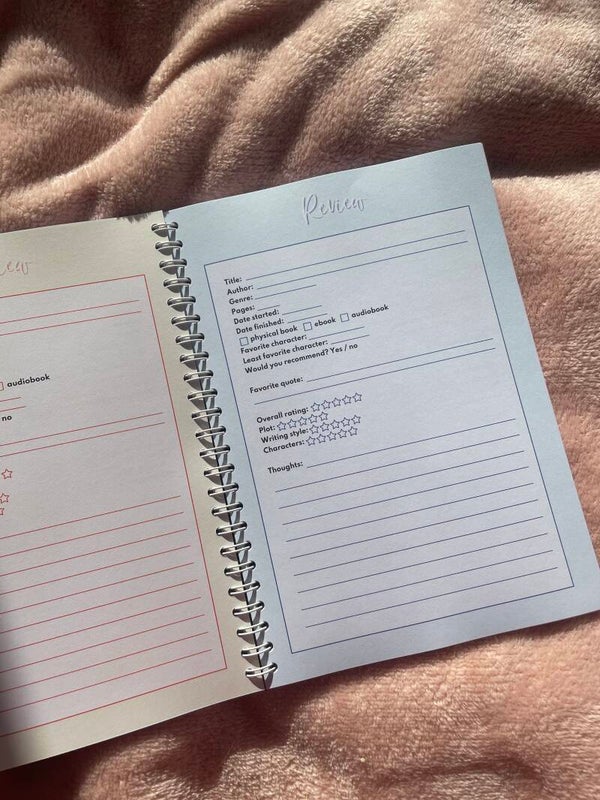 audiobook
no
Review
Title:
Author:
Genre:
Pages:
Date started:
Date finished:
physical book ebook audiobook
Favorite character:
Least favorite character:
Would you recommend? Yes / no
Favorite quote:
Overall rating:
Plot:
Writing style:
Characters:
Thoughts: